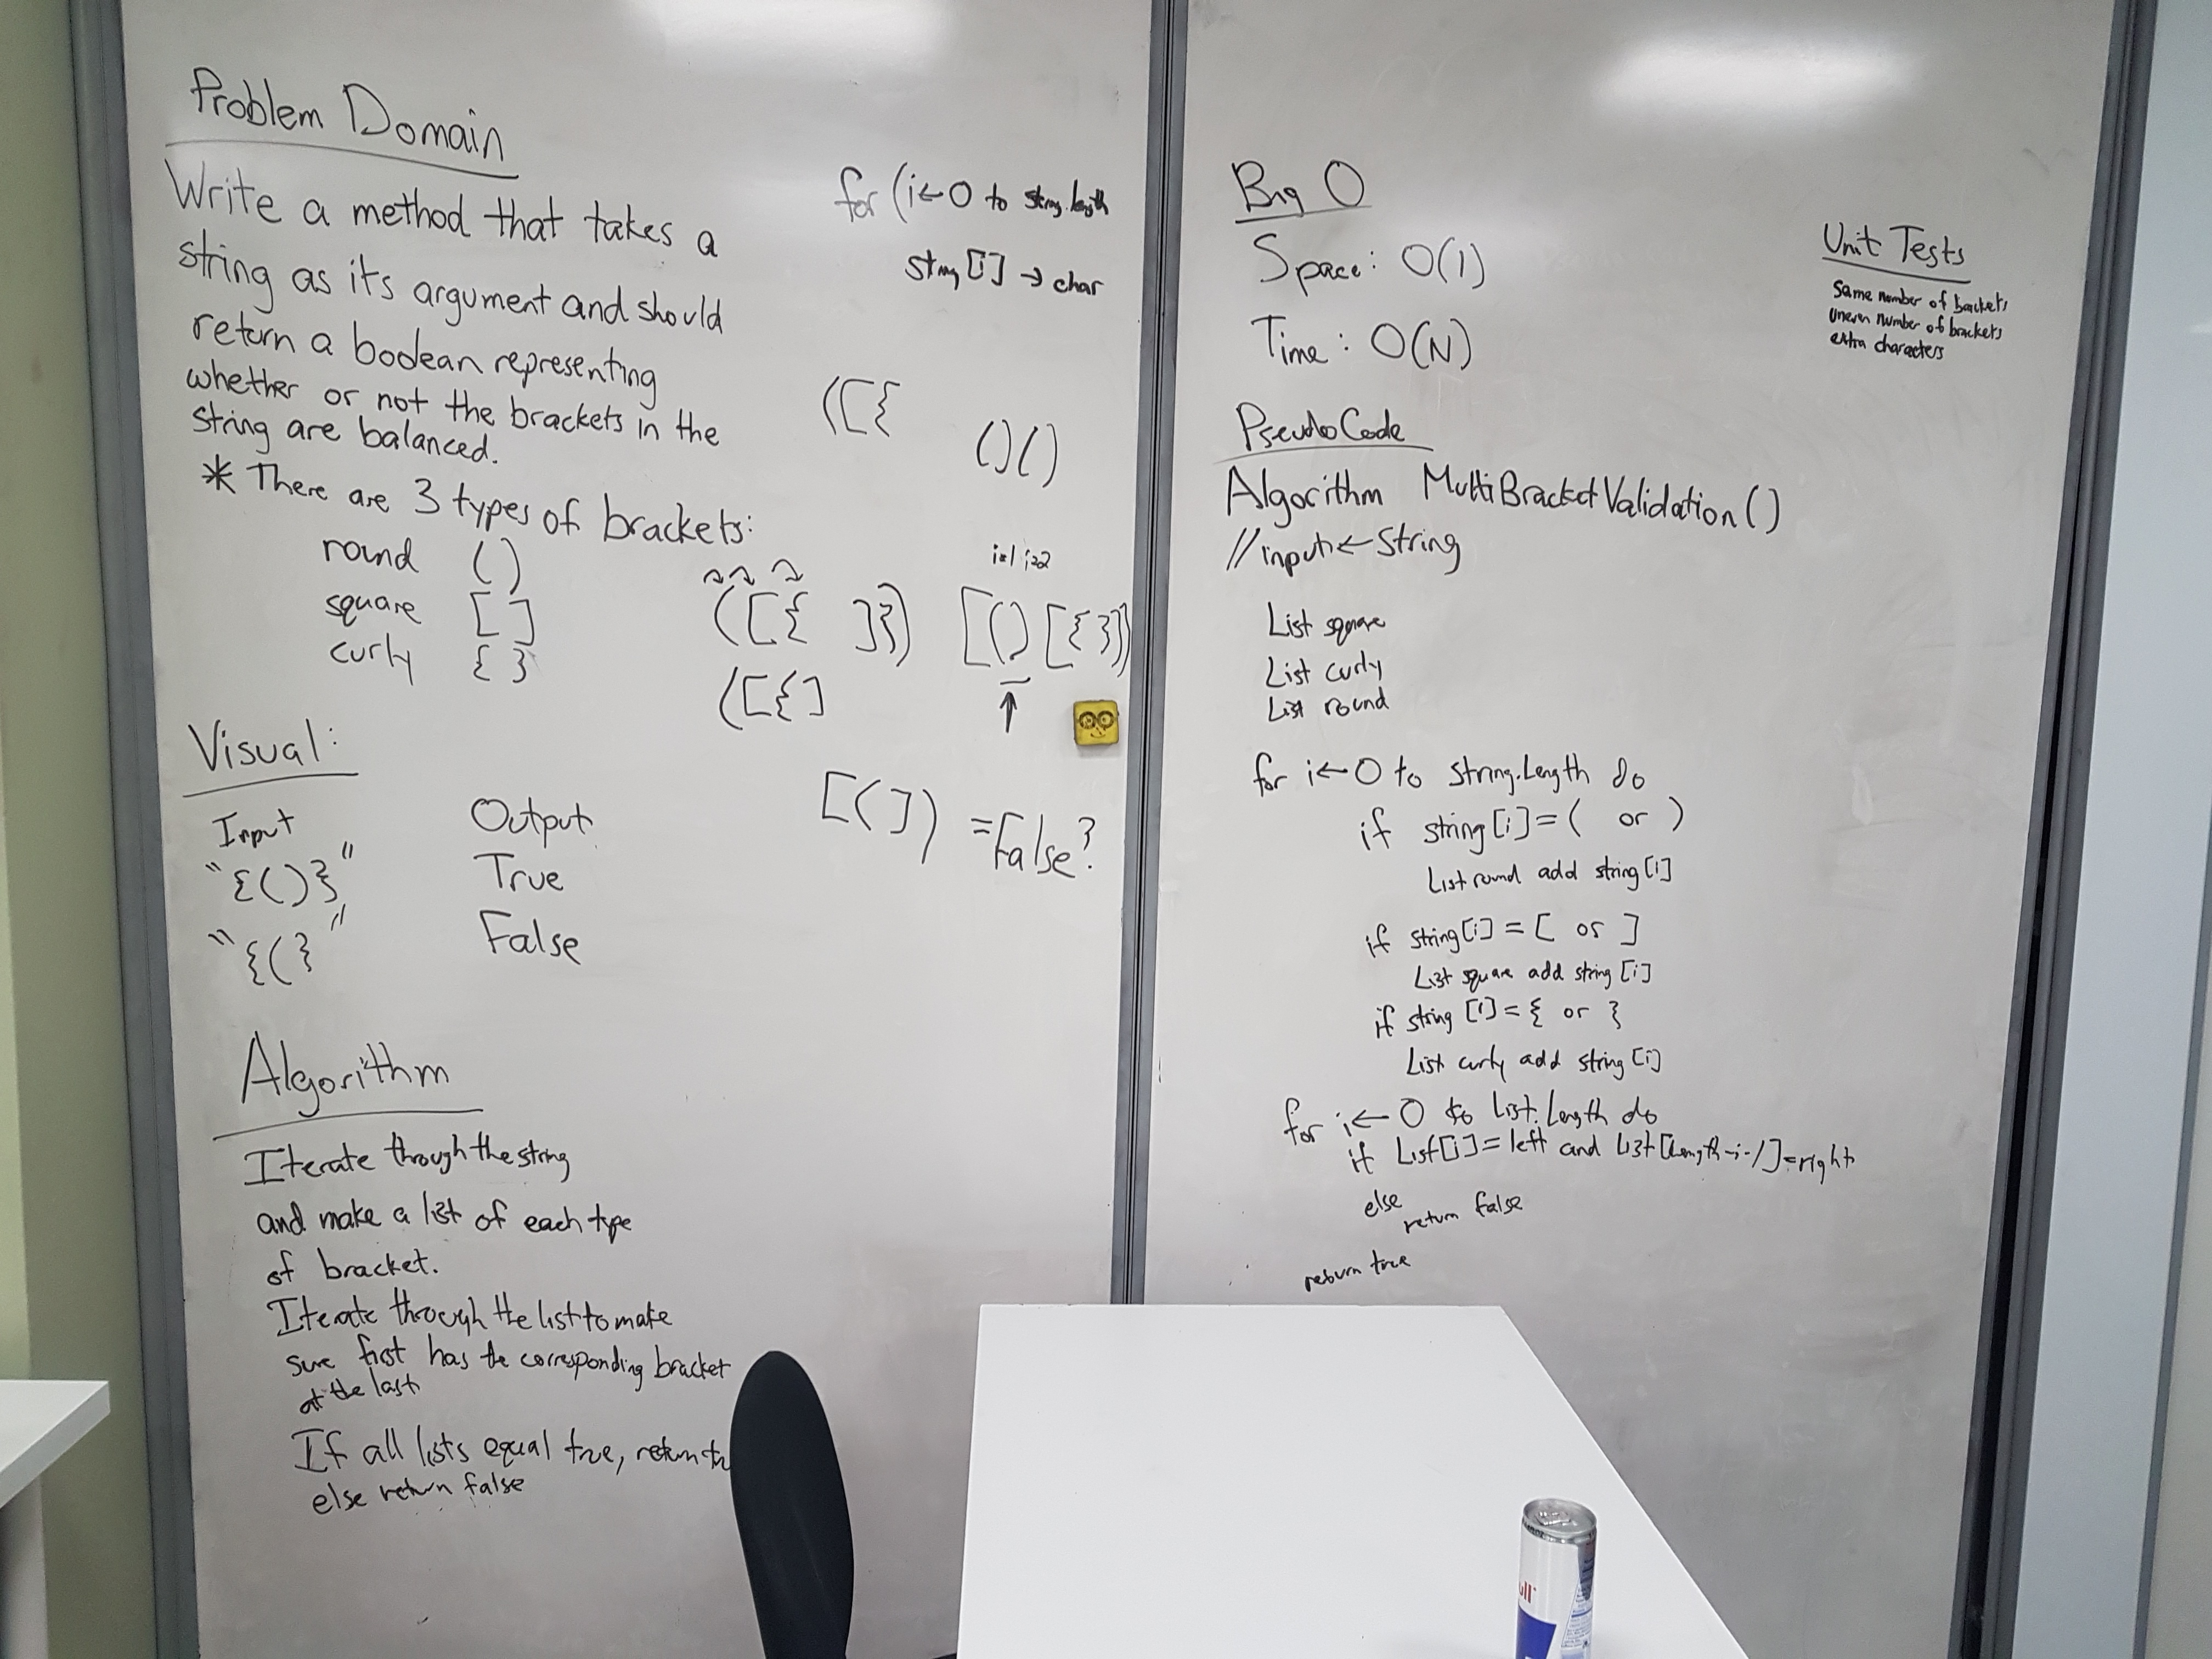 Problem Domain
Write a method that takes a
string as its argument and should
return a boolean representing
whether or not the brackets in the
string are balanced.
* There are 3 types of brackets:
round ( )
square [ ]
curly { }
Visual:
Input Output
"{()}" True
"{(}" False
Algorithm
Iterate through the string
and make a list of each type
of bracket.
Iterate through the list to make
sure first has the corresponding bracket
at the last
If all lists equal true, return
else return false
for (i ← 0 to string.length
string [i] → char
([{
()()
i=1 i=2
([{ ]})
[()[{}]]
([{]
[(]) = False?
Big O
Space: O(1)
Time: O(N)
Unit Tests
Same number of brackets
uneven number of brackets
extra characters
PseudoCode
Algorithm MultiBracketValidation()
//input ← String
List square
List curly
List round
for i ← 0 to string.Length do
if string[i] = ( or )
List round add string[i]
if string[i] = [ or ]
List square add string[i]
if string[i] = { or }
List curly add string[i]
for i ← 0 to List.Length do
if List[i] = left and List[Length-i-1] = right
else
return false
return true
ull